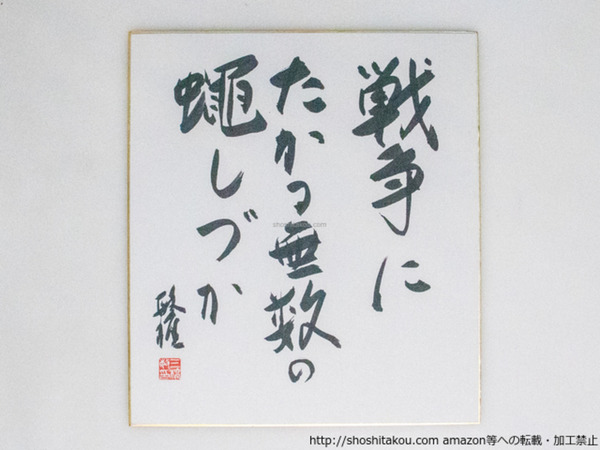 戦争に
たかる無数の
蠅しづか
敏雄
shoshitakou.com
http://shoshitakou.com amazon等への転載・加工禁止